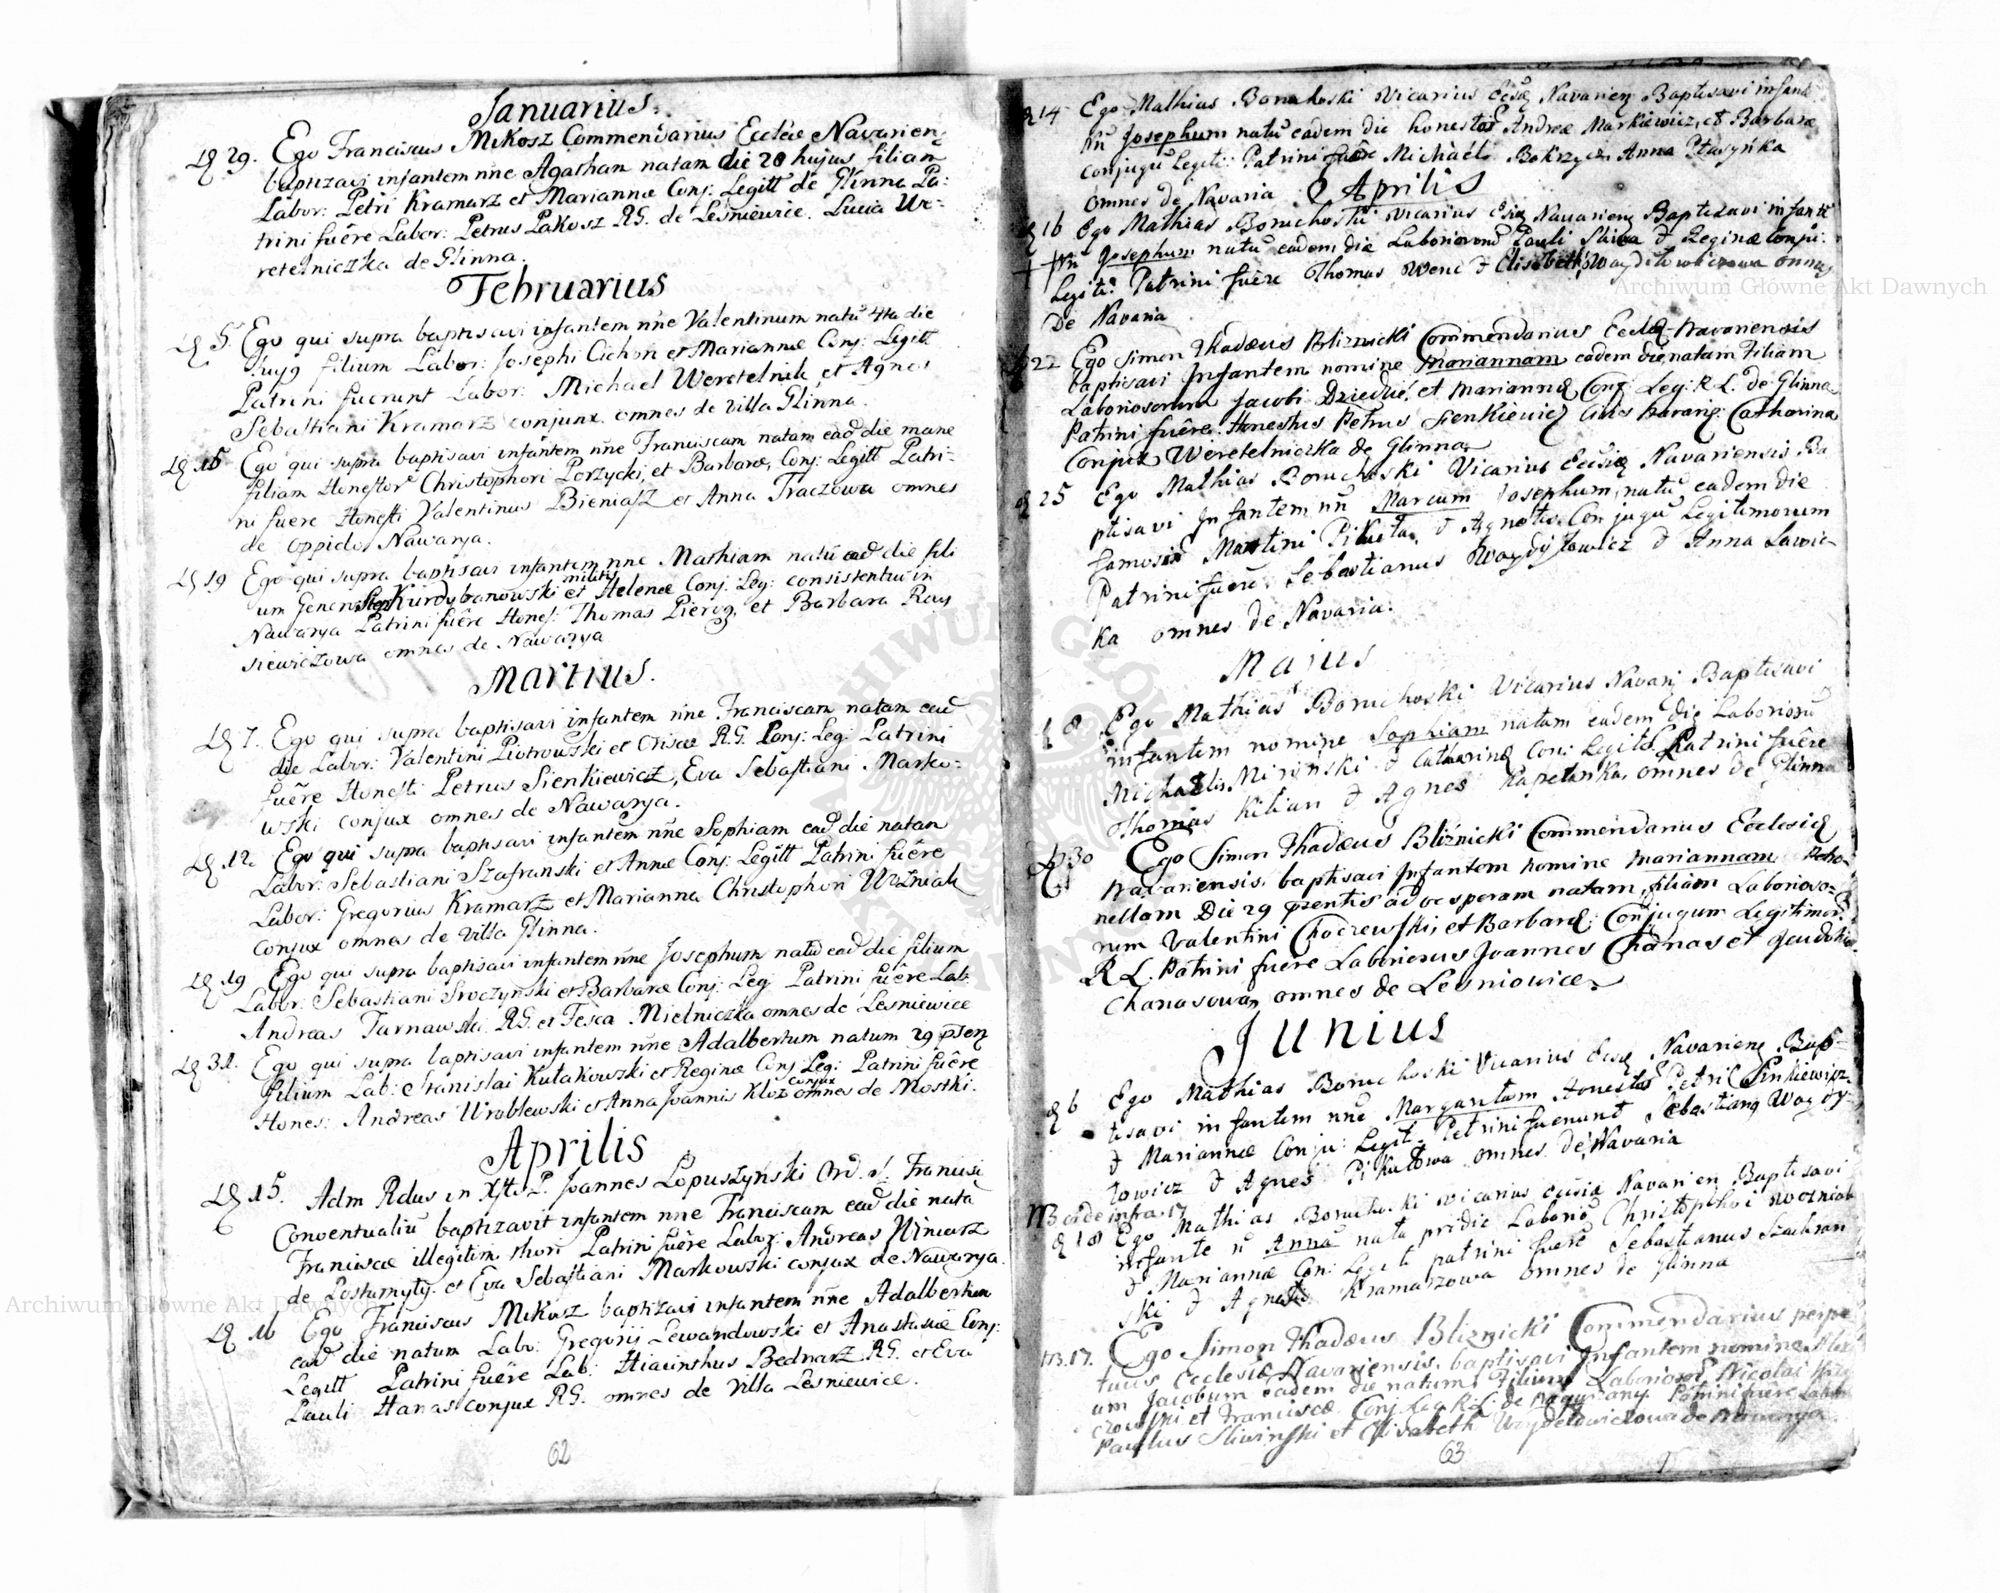 Januarius.
29. Ego Franciscus Mikosz Commendarius Eccłae Navarien:
baptizavi infantem nne Agatham natam die 28 hujus filiam
Labor: Petri Kramarz et Mariannæ Conj: Legitt de Glinna Pa:
trini fuêre Labor: Petrus Pakosz RG. de Lesniewice. Lucia We:
retelniczka de Glinna.
Februarius
5. Ego qui supra baptisavi infantem nne Valentinum natũ 4ta die
hujq filium Labor: Josephi Cichon et Mariannæ Conj: Legitt
Patrini fuerunt Labor: Michael Weretelnik et Agnes
Sebastiani Kramarz conjunx omnes de Villa Glinna.
Ego qui supra baptisavi infantem nne Franciscam natam ead die mane
filiam Honestor Christophori Porzycki, et Barbaræ, Conj: Legitt Patri-
ni fuere Honesti Valentinus Bieniasz et Anna Traczowa omnes
de oppido Nawarya.
19 Ego qui supra baptisavi infantem nne Mathiam natũ ead die fili
um Generosi Kurdybanowski militis et Helenæ Conj: Leg: consistentiu in
Nawarya Patrini fuêre Hones: Thomas Pierog, et Barbara Ray
siewiczowa omnes de Nawarya
Martius.
7. Ego qui supra baptisavi infantem nne Franciscam natam ead
die Labor: Valentini Piotrowski et Orisæ RG. Conj: Leg: Patrini
fuêre Honesti Petrus Sienkiewicz, Eva Sebastiani Marko-
wski conjux omnes de Nawarya.
12. Ego qui supra baptisavi infantem nne Sophiam ead die natam
Labor: Sebastiani Szafranski et Annæ Conj: Legitt Patrini fuêre
Labor: Gregorius Kramarz et Marianna Christophori Wozniak
Conjux omnes de Villa Glinna.
19 Ego qui supra baptisavi infantem nne Josephum natũ ead die filium
Labor: Sebastiani Sroczynski et Barbaræ Conj: Leg Patrini fuêre Lab:
Andreas Tarnawski RG. et Tesca Mielniczka omnes de Lesniewice
31. Ego qui supra baptisavi infantem nne Adalbertum natum 29 psen
filium Lab: Stanislai Kułakowski et Reginæ Conj Leg: Patrini fuêre
Hones: Andreas Wroblewski et Anna Joannis Kloz conjux omnes de Mostki.
Aprilis
15. Adm Rdus in Xsto P. Joannes Lopuszynski Ord. S. Francisci
Conventualiũ baptizavit infantem nne Franciscam ead die natã
Franciscæ illegitim thori Patrini fuêre Labor: Andreas Niniarz
de Postumyty. et Eva Sebastiani Markowski conjux de Nawarya.
16 Ego Franciscus Mikosz baptizavi infantem nne Adalbertum
ead die natum Labr: Gregorij Lewandowski et Anastasiæ Conj:
Legitt Patrini fuêre Lab: Hiacinthus Bednarz RG. et Eva
Pauli Hanas conjux RG. omnes de Villa Lesniewice.
62
14 Ego Mathias Boruchoski Vicarius Navarien Baptisavi infant
Josephum natũ eadem die honestor Andreæ Markiewicz, et Barbaræ
conjugũ Legit: Patrini fuêre Michael Anna Ptasynka
omnes de Navaria Aprilis
16 Ego Mathias Boruchoski Vicarius Navarien Baptisavi infante
Josephum natũ eadem die Pauli Sliwa et Reginæ Conju:
Legit: Patrini fuêre Thomas et Elisabeth omnes
De Navaria
22 Ego Simon Thadæus Bliznicki Commendarius Eccła Navariensis
baptisavi Infantem nomine Mariannam eadem die natam Filiam
Laboriosorum Jacobi et Mariannæ Conj: Leg: R.L. de Glinna
Patrini fuêre: Honestus Petrus Sienkiewicz Catharina
Conjux Weretelniczka de Glinna.
25 Ego Mathias Boruchoski Vicarius Navariensis Ba
ptisavi Infantem nñ Marcum Josephum, natũ eadem die
Martini Pikuta, et Agnetis Conjugũ Legitimorum
Patrini fuere: Sebastianus Woydyłowicz et Anna Lawic-
ka omnes de Navaria.
Maius
8 Ego Mathias Boruchoski Vicarius Navari Baptisavi
infantem nomine Sophiam natam eadem die Laboriosũ
Michaelis Mirinski et Catharinæ Con: Legit: Patrini fuêre
Thomas Kilian et Agnes Kapetanka, omnes de Glinna
30 Ego Simon Thadæus Bliznicki Commendarius Ecclesiæ
Navariensis, baptisavi Infantem nomine Mariannam, Petro-
nellam Die 29 psentis ad vesperam natam, filiam Laborioso-
rum Valentini Choczewski, et Barbaræ: Conjugum Legitimor.
R L. Patrini fuêre Laboriosus Joannes Chanas et Jeudokia
Chanasowa, omnes de Lesniowice.
Junius
6 Ego Mathias Boruchoski Vicarius Navarien Bap-
tisavi infantem nne Margaritam Honestor Petri Sinkiewicz
et Mariannæ Conju: Legit: Petrini fuerunt Sebastianq Woydy-
łowicz et Agnes Pikutowa omnes de Navaria
NB cade infra 17
18 Ego Mathias Boruchoski Vicarius Navarien Baptisavi
infante ñ Annã natã pridie Christophori Wozniak
et Mariannæ Con: Legit patrini fuere Sebastianus Szafran
ski et Agnes Kramarzowa omnes de Glinna
NB.17. Ego Simon Thadæus Bliznicki Commendarius perpe-
tuus Ecclesiæ Navariensis, baptisavi Infantem nomine
um Jacobum eadem die natum, Filium Laboriosor Nicolai
et Franciscæ Conj Leg R.L: de Patrini fuêre
Paulus Sliwinski et Elisabeth Woydełowiczowa de Nawarya
63
Archiwum Główne Akt Dawnych
Archiwum Główne Akt Dawnych